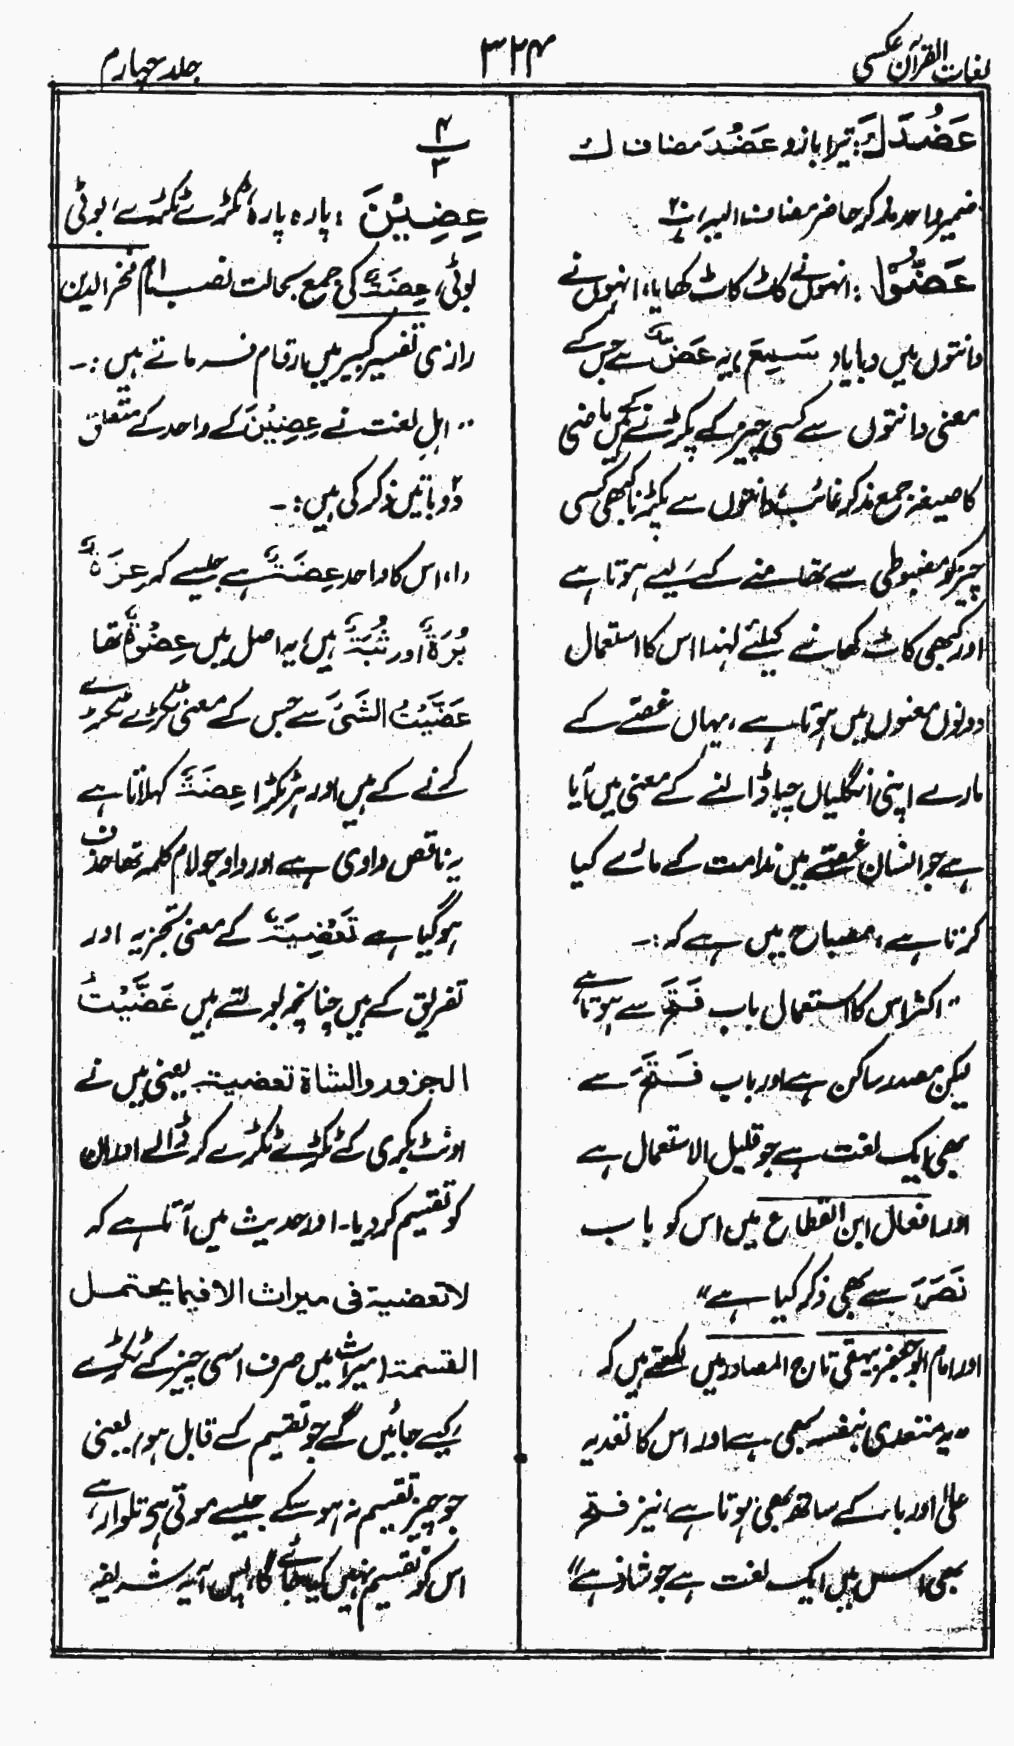 لغات القرآن عکسی
۳۲۴
جلد چہارم
عَضُدَكَ: تیرا بازو عَضُدَ مضاف ك
ضمیر واحد مذکر حاضر مضاف الیہ
عَضُّوْا: انہوں نے کاٹ کاٹ کھایا، انہوں نے
دانتوں میں دبایا، سَمِعَ، یہ عَضٌّ سے جس کے
معنی دانتوں سے کسی چیز کے پکڑنے کے ہیں ماضی
کا صیغہ جمع مذکر غائب، دانتوں سے پکڑنا کبھی کسی
چیز کو مضبوطی سے تھامنے کے لیے ہوتا ہے
اور کبھی کاٹ کھانے کیلئے لہٰذا اس کا استعمال
دونوں معنوں میں ہوتا ہے، یہاں غصّے کے
مارے اپنی انگلیاں چبا ڈالنے کے معنی میں آیا
ہے جو انسان غصّے میں ندامت کے مارے کیا
کرتا ہے، مصباح میں ہے کہ:۔
"اکثر اس کا استعمال باب فَتَحَ سے ہوتا ہے،
لیکن مصدر ساکن ہے اور باب فَتَحَ سے
بھی ایک لغت ہے جو قلیل الاستعمال ہے
اور افعال ابن القطاع میں اس کو باب
نَصَرَ سے بھی ذکر کیا ہے"
اور امام ابو جعفر بیہقی تاج المصادر میں لکھتے ہیں کہ
"یہ متعدی بنفسہ بھی ہے اور اس کا تعدیہ
علیٰ اور باء کے ساتھ بھی ہوتا ہے، نیز فتح
بھی اس میں ایک لغت ہے جو شاذ ہے"
۴
۳
عِضِیْنَ: پارہ پارہ، ٹکڑے ٹکڑے، بوٹی
بوٹی، عِضَةٌ کی جمع بحالت نصب امام فخر الدین
رازی تفسیر کبیر میں ارقام فرماتے ہیں:۔
"اہلِ لغت نے عِضِیْنَ کے واحد کے متعلق
دو باتیں ذکر کی ہیں:۔
(۱) اس کا واحد عِضَةٌ ہے جیسے کہ عِزَةٌ
بُرَةٌ اور ثُبَةٌ ہیں، یہ اصل میں عِضْوَةٌ تھا
عَضَّیْتُ الشَّیْءَ سے جس کے معنی ٹکڑے ٹکڑے
کرنے کے ہیں اور ہر ٹکڑا عِضَةٌ کہلاتا ہے
یہ ناقص واوی ہے اور واو جو لام کلمہ تھا حذف
ہو گیا ہے تَعْضِیَةٌ کے معنی تجزیہ اور
تفریق کے ہیں چنانچہ بولتے ہیں عَضَّیْتُ
الجزور والشاة تعضیة یعنی میں نے
اونٹ بکری کے ٹکڑے ٹکڑے کر ڈالے اور ان
کو تقسیم کر دیا۔ اور حدیث میں آتا ہے کہ
لا تعضیة فی میراث الا فیما یحتمل
القسمة (میراث میں صرف اسی چیز کے ٹکڑے
کیے جائیں گے جو تقسیم کے قابل ہو) یعنی
جو چیز تقسیم نہ ہو سکے جیسے موتی ہے، تلوار ہے،
اس کو تقسیم نہیں کیا جائے گا، پس آیہ شریفہ